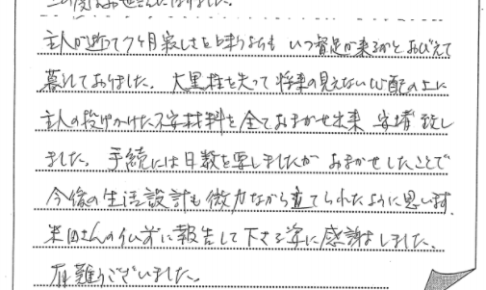 主人が逝て7ヶ月寂しさと
いつ督促が来るかとおびえて
暮れておりました。大黒柱を失って将来の見えない心配の上に
主人の投げかけた不安材料を全ておまかせ出来 安堵致し
ました。手続には日数を要しましたが おまかせしたことで
今後の生活設計も微力ながら立てられたように思います。
米田さんの仏前に報告して下さる姿に感謝しました。
有難うございました。